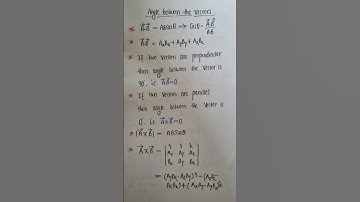 Angle between the Vectors
* A⃗.B⃗ = ABCosθ ⇒ Cosθ = A⃗.B⃗ / AB
* A⃗.B⃗ = AxBx + AyBy + AzBz
* If two Vectors are perpendicular
then angle between the Vector is
90° i.e A⃗.B⃗ = 0
* If two Vectors are parallel
then angle between the Vector is
0° i.e A⃗×B⃗ = 0
* |A⃗×B⃗| = ABSinθ
* A⃗×B⃗ =
Ax Ay Az
Bx By Bz